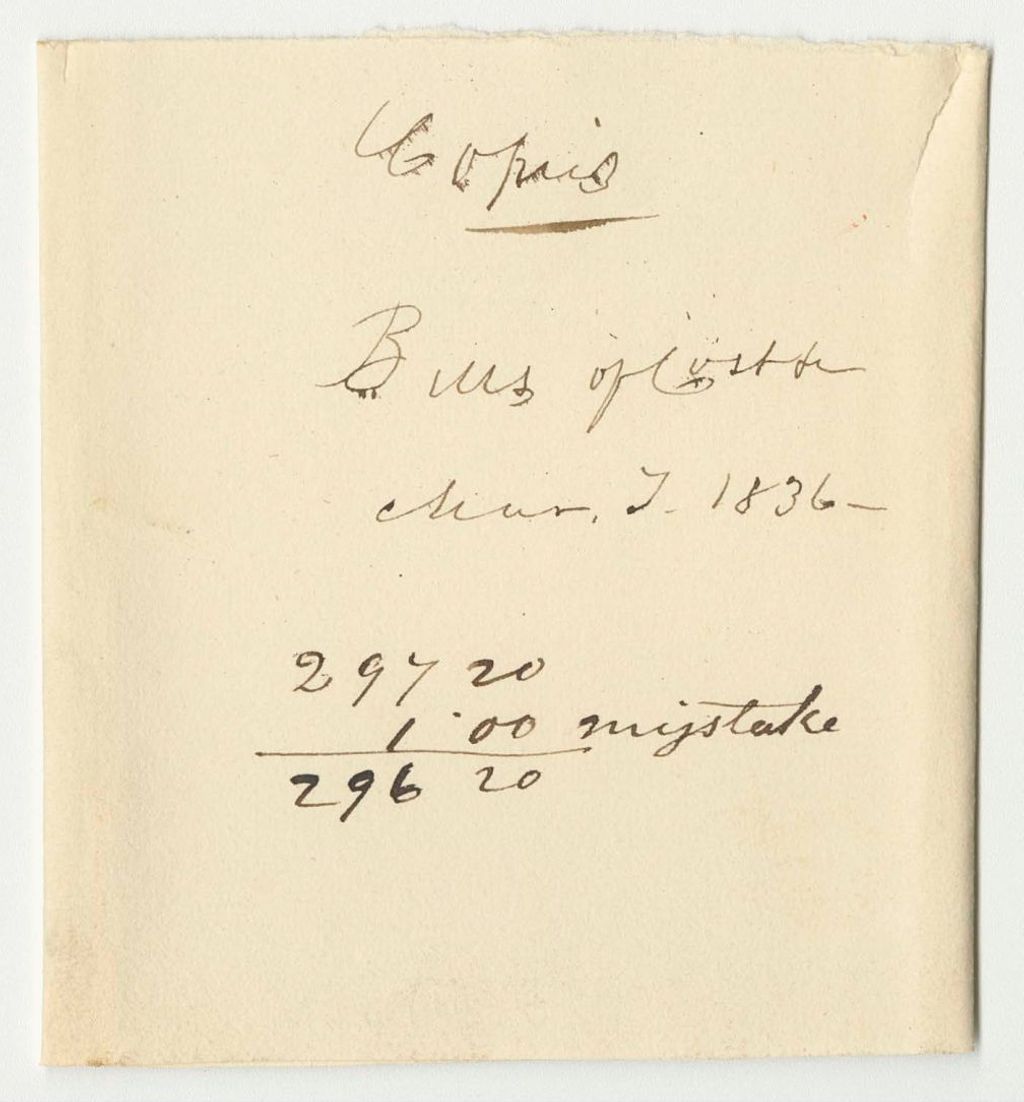 Copies
Bills of Cost &c
Mar. T. 1836-
297 20
1.00 mistake
296 20